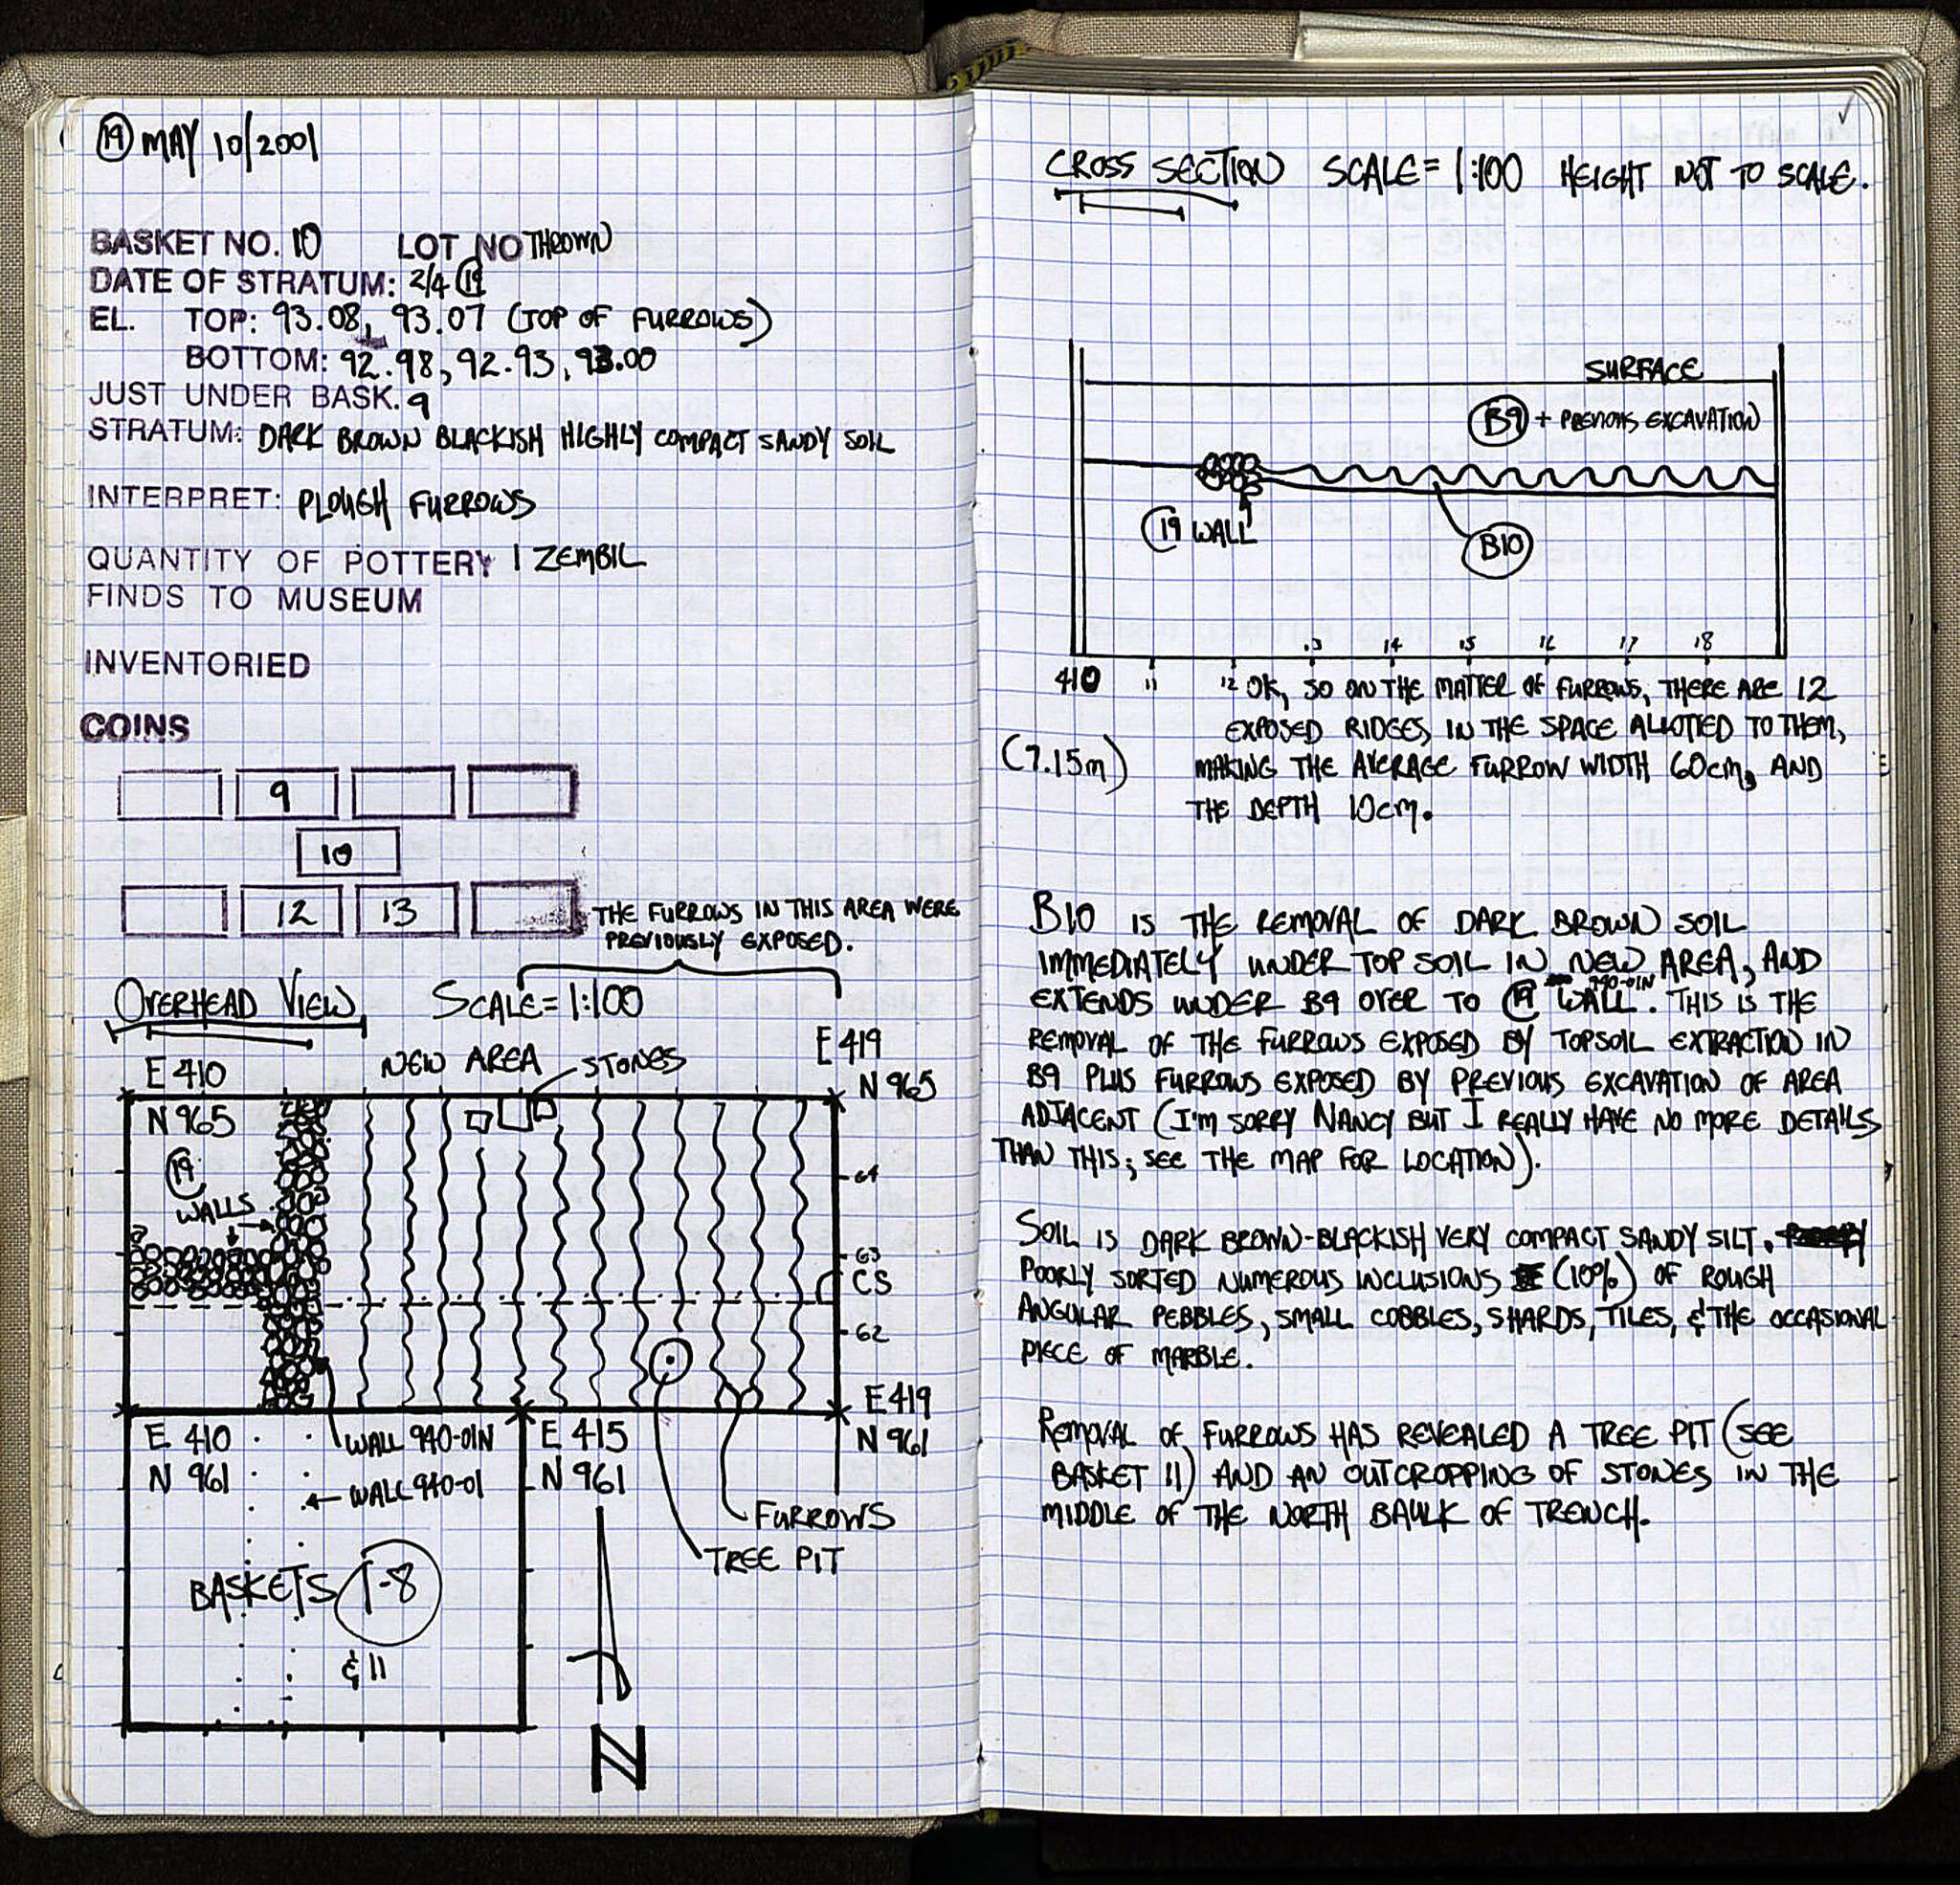 ⑲ MAY 10/2001
BASKET NO. 10 LOT NO THROWN
DATE OF STRATUM: 2/4 ⑲
EL. TOP: 93.08, 93.07 (TOP OF FURROWS)
BOTTOM: 92.98, 92.93, 93.00
JUST UNDER BASK. 9
STRATUM: DARK BROWN BLACKISH HIGHLY COMPACT SANDY SOIL
INTERPRET: PLOUGH FURROWS
QUANTITY OF POTTERY 1 ZEMBIL
FINDS TO MUSEUM
INVENTORIED
COINS
9
10
12 13
THE FURROWS IN THIS AREA WERE
PREVIOUSLY EXPOSED.
OVERHEAD VIEW SCALE = 1:100
E 410 NEW AREA STONES E 419
N 965 N 965
⑲ 64
WALLS
63
CS
62
E 419
E 410 WALL 940-01N E 415 N 961
N 961 WALL 940-01 N 961
FURROWS
TREE PIT
BASKETS 1-8
& 11
N
CROSS SECTION SCALE = 1:100 HEIGHT NOT TO SCALE.
SURFACE
B9 + PREVIOUS EXCAVATION
⑲ WALL
B10
13 14 15 16 17 18
410 11 12 OK, SO ON THE MATTER OF FURROWS, THERE ARE 12
EXPOSED RIDGES, IN THE SPACE ALLOTTED TO THEM,
(7.15m) MAKING THE AVERAGE FURROW WIDTH 60cm, AND
THE DEPTH 10cm.
B10 IS THE REMOVAL OF DARK BROWN SOIL
IMMEDIATELY UNDER TOP SOIL IN NEW AREA, AND
EXTENDS UNDER B9 OVER TO ⑲ 940-01N WALL. THIS IS THE
REMOVAL OF THE FURROWS EXPOSED BY TOPSOIL EXTRACTION IN
B9 PLUS FURROWS EXPOSED BY PREVIOUS EXCAVATION OF AREA
ADJACENT (I'M SORRY NANCY BUT I REALLY HAVE NO MORE DETAILS
THAN THIS; SEE THE MAP FOR LOCATION).
SOIL IS DARK BROWN-BLACKISH VERY COMPACT SANDY SILT.
POORLY SORTED NUMEROUS INCLUSIONS (10%) OF ROUGH
ANGULAR PEBBLES, SMALL COBBLES, SHARDS, TILES, & THE OCCASIONAL
PIECE OF MARBLE.
REMOVAL OF FURROWS HAS REVEALED A TREE PIT (SEE
BASKET 11) AND AN OUTCROPPING OF STONES IN THE
MIDDLE OF THE NORTH BAULK OF TRENCH.